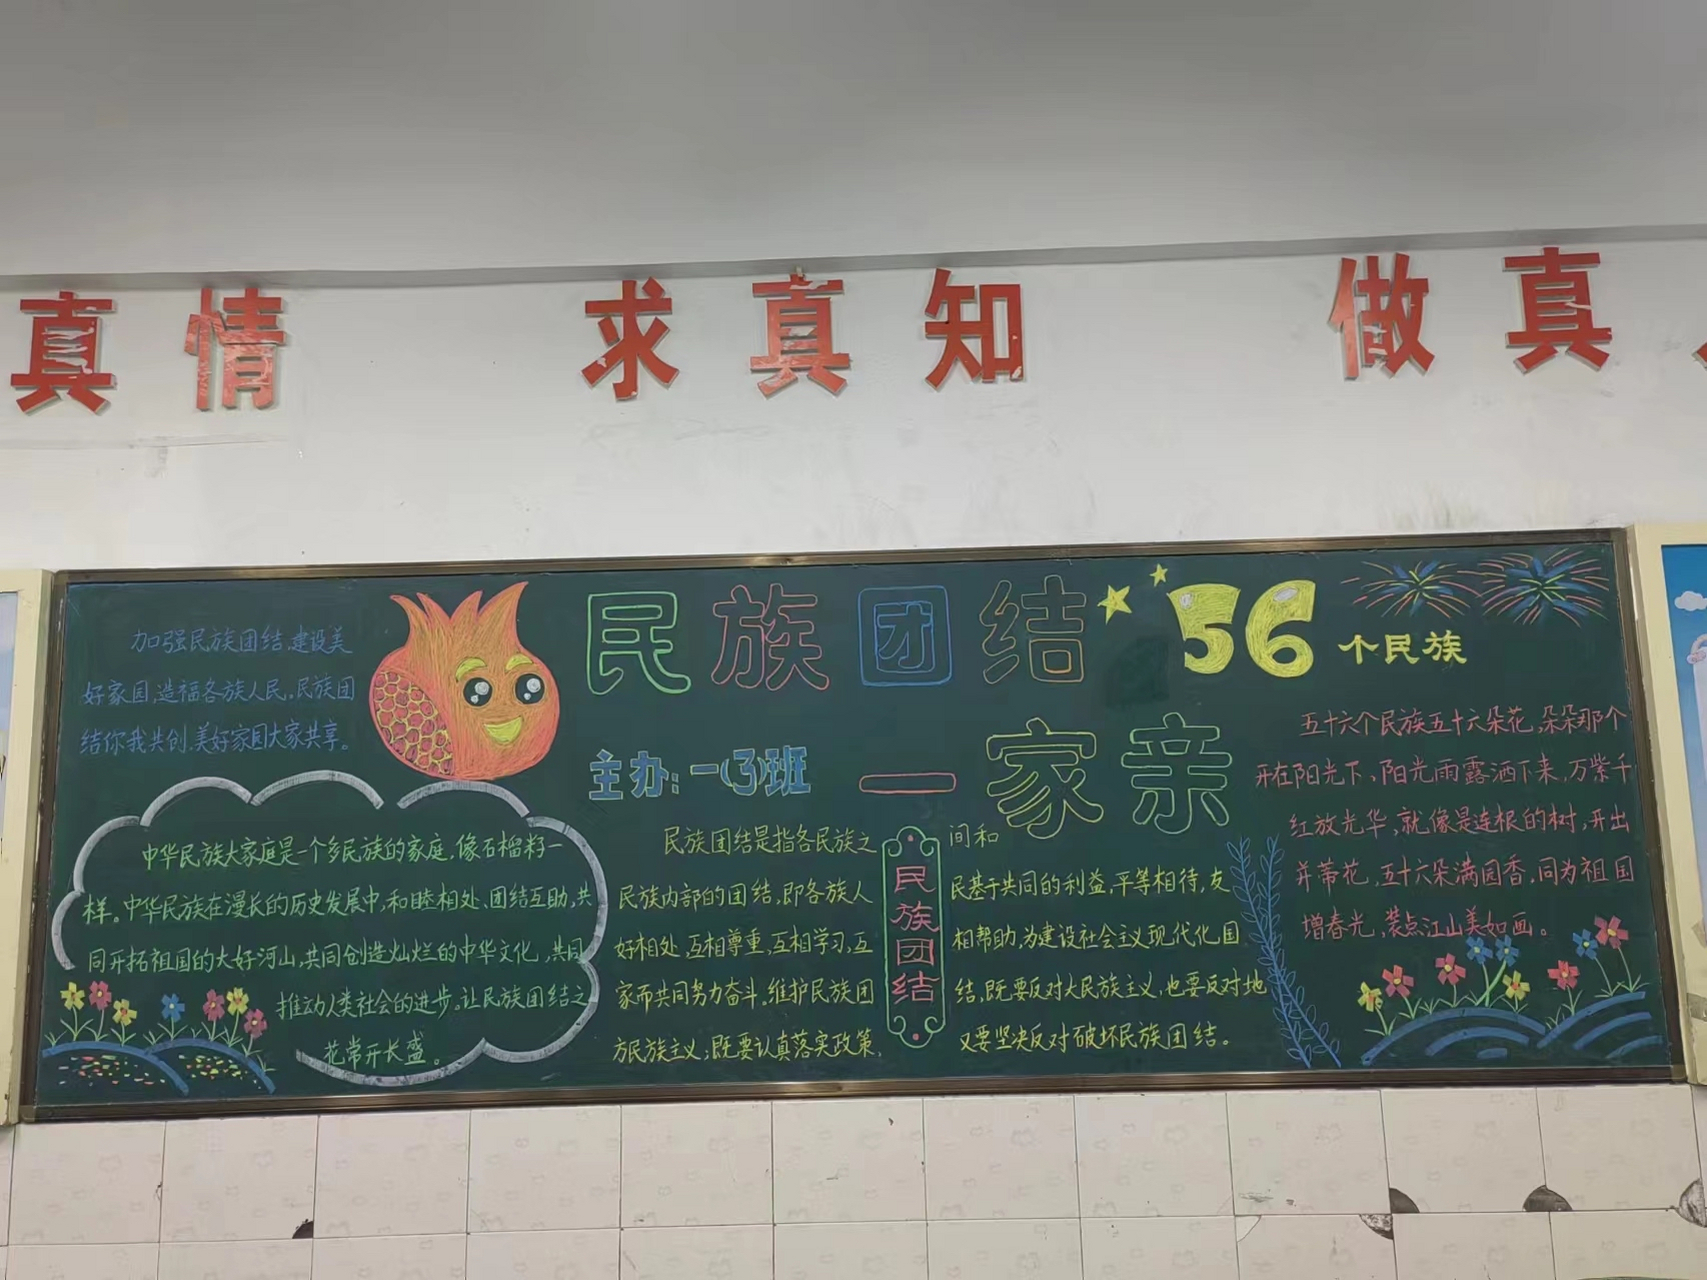 真情 求真知 做真
加强民族团结,建设美
好家园,造福各族人民。民族团
结你我共创,美好家园大家共享。
民族团结
一家亲
主办:一(3)班
56个民族
中华民族大家庭是一个多民族的家庭,像石榴籽一
样。中华民族在漫长的历史发展中,和睦相处、团结互助,共
同开拓祖国的大好河山,共同创造灿烂的中华文化,共同
推动人类社会的进步。让民族团结之
花常开长盛。
民族团结是指各民族之间和
民族内部的团结,即各族人民基于共同的利益,平等相待,友
好相处,互相尊重,互相学习,互相帮助,为建设社会主义现代化国
家而共同努力奋斗。维护民族团结,既要反对大民族主义,也要反对地
方民族主义;既要认真落实政策,又要坚决反对破坏民族团结。
民族团结
五十六个民族五十六朵花,朵朵那个
开在阳光下、阳光雨露洒下来,万紫千
红放光华,就像是连根的树,开出
并蒂花,五十六朵满园香,同为祖国
增春光,装点江山美如画。